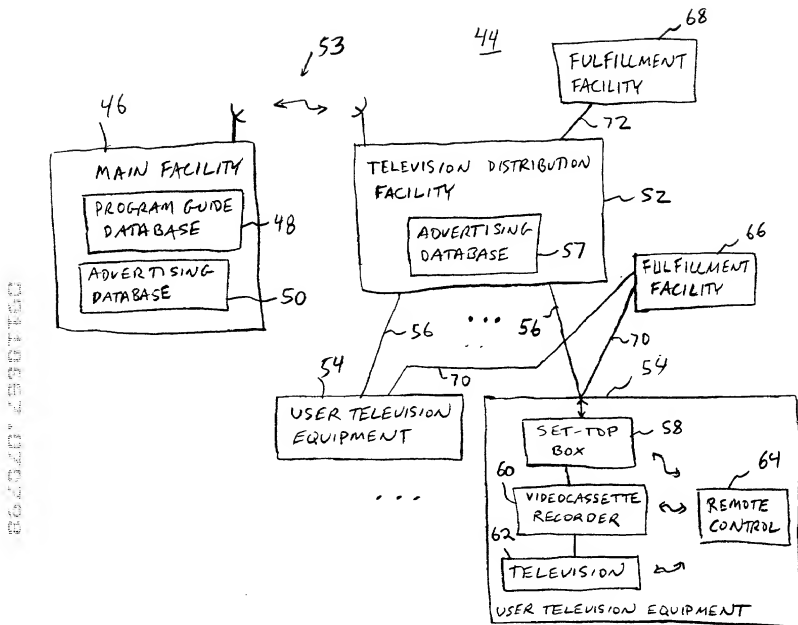 53
44
68
FULFILLMENT
FACILITY
46
72
MAIN FACILITY
PROGRAM GUIDE
DATABASE
48
ADVERTISING
DATABASE
50
TELEVISION DISTRIBUTION
FACILITY
52
ADVERTISING
DATABASE
57
66
FULFILLMENT
FACILITY
56
...
56
70
54
70
54
USER TELEVISION
EQUIPMENT
...
SET-TOP
BOX
58
60
VIDEOCASSETTE
RECORDER
64
REMOTE
CONTROL
62
TELEVISION
USER TELEVISION EQUIPMENT